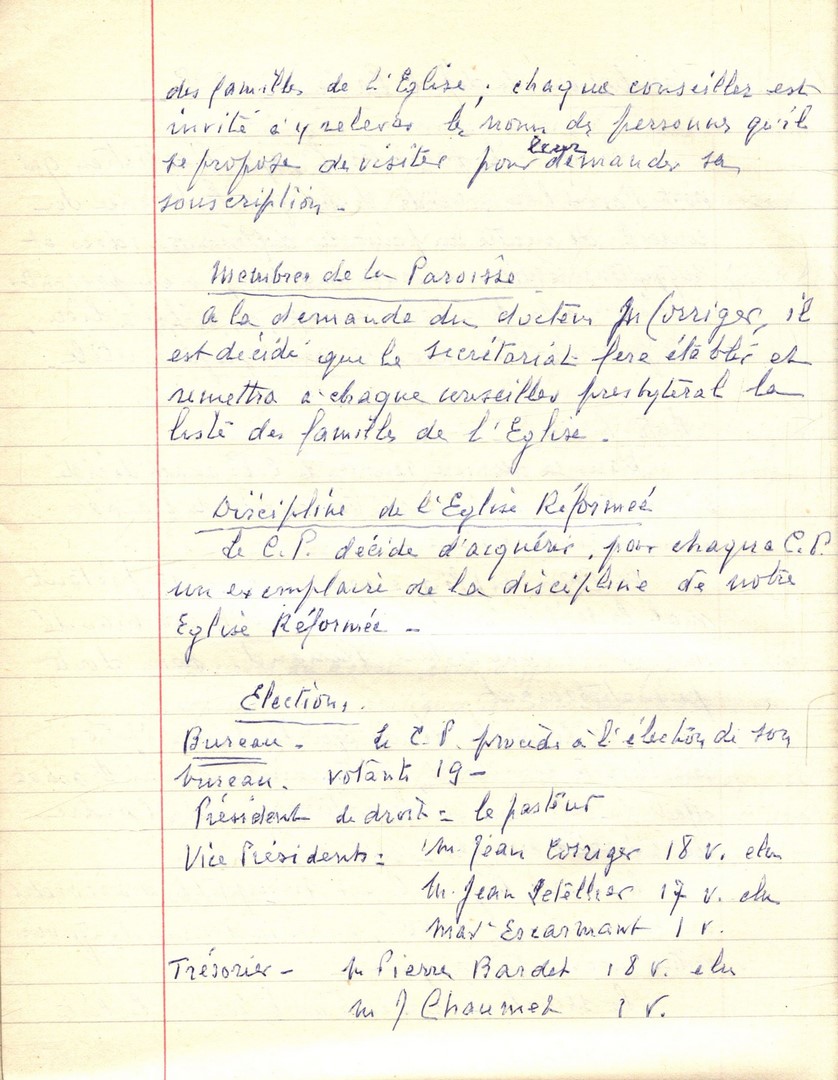 des familles de l'Eglise ; chaque conseiller est
invité à y relever les noms des personnes qu'il
se propose de visiter pour leur demander sa
souscription -
Membres de la Paroisse
à la demande du docteur Jn Corriger, il
est décidé que le secrétariat fera établir et
remettra à chaque conseiller presbytéral la
liste des familles de l'Eglise -
Discipline de l'Eglise Réformée
Le C.P. décide d'acquérir, pour chaque C.P.
un exemplaire de la discipline de notre
Eglise Réformée -
Elections.
Bureau - Le C.P. procède à l'élection de son
bureau. votants 19 -
Président de droit = le pasteur
Vice Présidents = M. Jean Corriger 18 v. élu
M. Jean Letellier 17 v. élu
Escarmant 1 v.
Trésorier - M Pierre Bardet 18 v. élu
M J Chaumet 1 v.